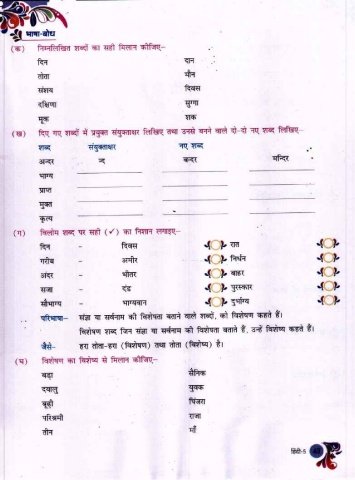 भाषा-बोध
(क) निम्नलिखित शब्दों का सही मिलान कीजिए–
दिन दान
तोता मौन
संशय दिवस
दक्षिणा सुग्गा
मूक शक
(ख) दिए गए शब्दों में प्रयुक्त संयुक्ताक्षर लिखिए तथा उनसे बनने वाले दो-दो नए शब्द लिखिए–
शब्द संयुक्ताक्षर नए शब्द
अन्दर न्द बन्दर मन्दिर
भाग्य
प्राप्त
मुक्त
कृत्य
(ग) विलोम शब्द पर सही (✓) का निशान लगाइए–
दिन – दिवस रात
गरीब – अमीर निर्धन
अंदर – भीतर बाहर
सजा – दंड पुरस्कार
सौभाग्य – भाग्यवान दुर्भाग्य
परिभाषा– संज्ञा या सर्वनाम की विशेषता बताने वाले शब्दों, को विशेषण कहते हैं।
विशेषण शब्द जिन संज्ञा या सर्वनाम की विशेषता बताते हैं, उन्हें विशेष्य कहते हैं।
जैसे– हरा तोता-हरा (विशेषण) तथा तोता (विशेष्य) है।
(घ) विशेषण का विशेष्य से मिलान कीजिए–
बड़ा सैनिक
दयालु युवक
बूढ़ी पिंजरा
परिश्रमी राजा
तीन माँ
हिंदी-5